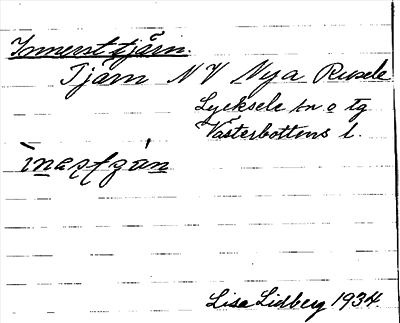 Inmenstjärn.
Tjärn NV Nya Rusele
Lycksele sn o tg
Västerbottens l.
Lisa Lidberg 1934